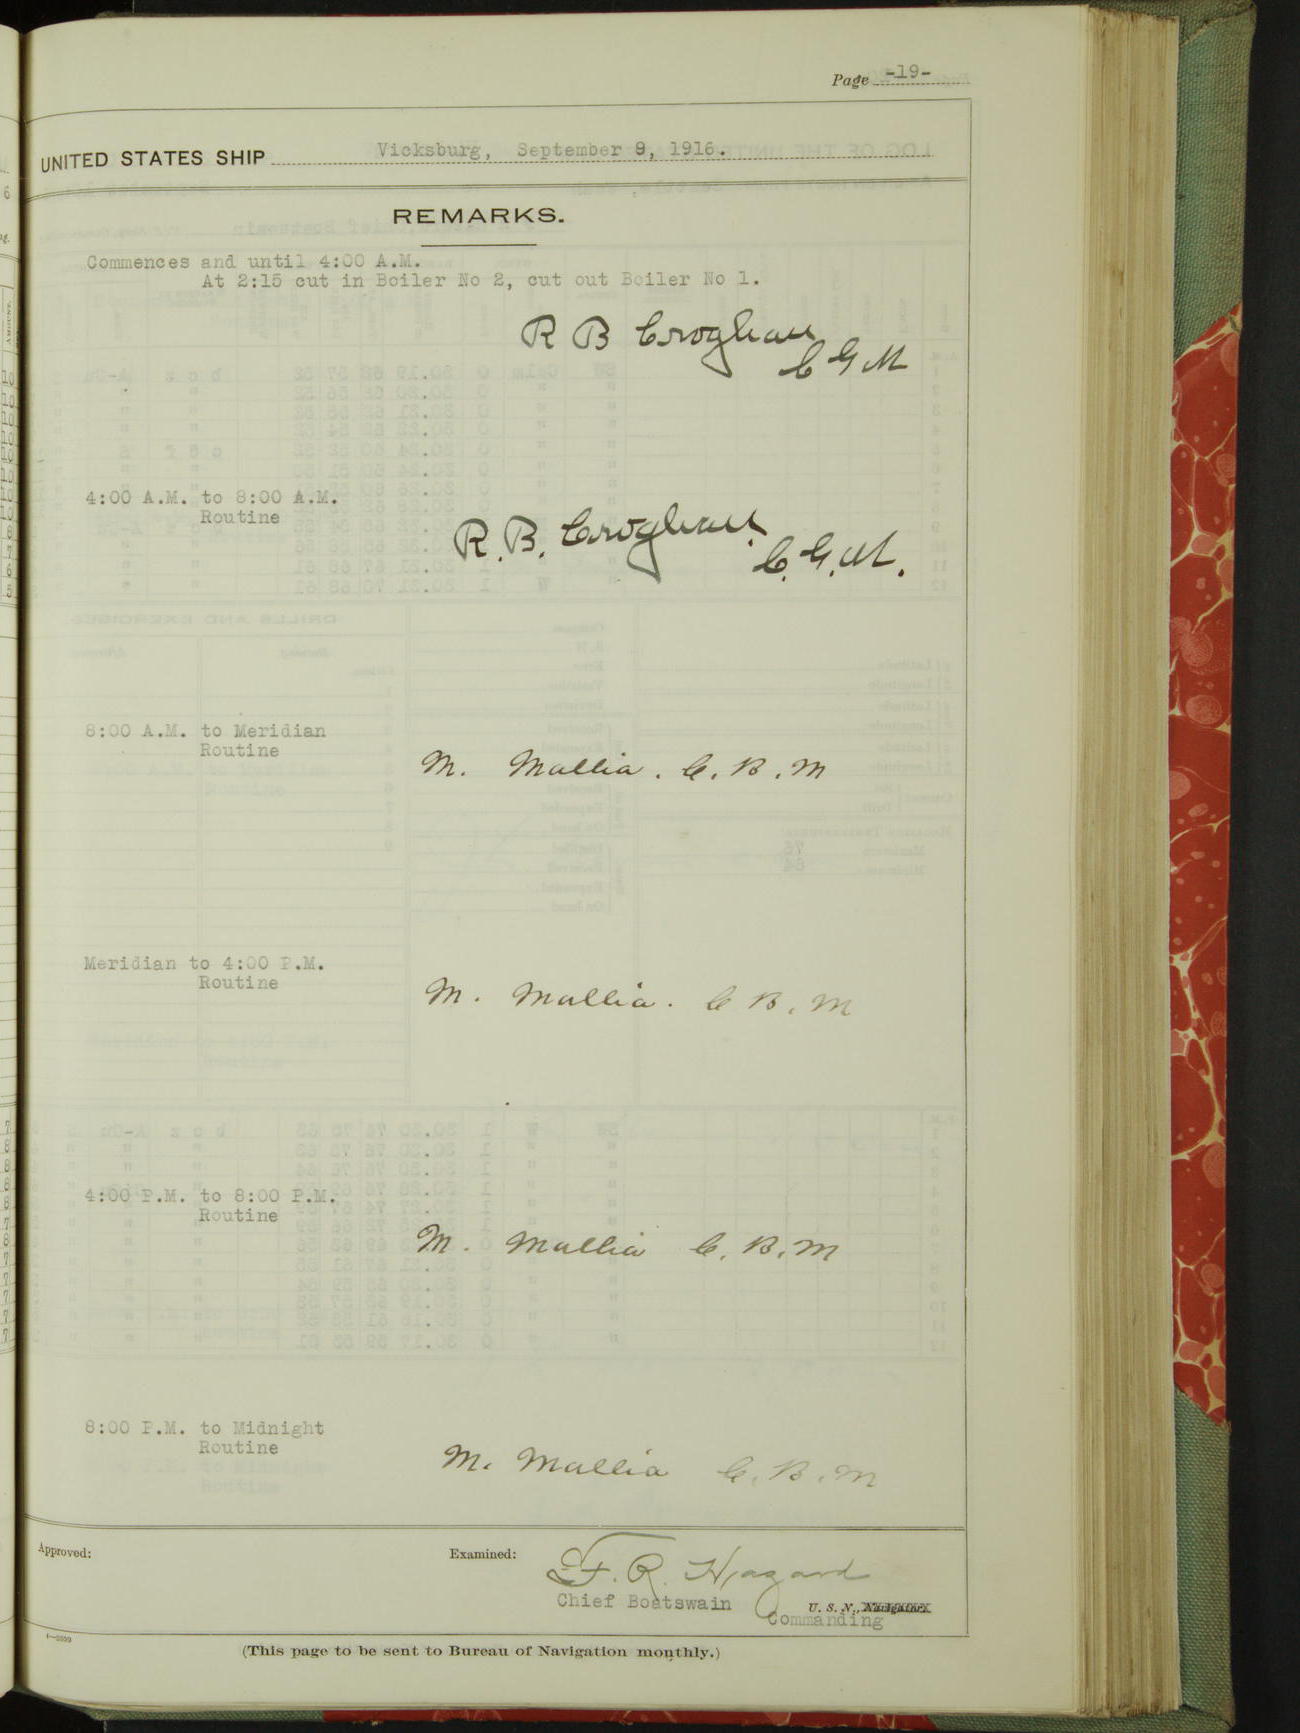 Page -19-
UNITED STATES SHIP Vicksburg, September 9, 1916.
REMARKS.
Commences and until 4:00 A.M.
At 2:15 cut in Boiler No 2, cut out Boiler No 1.
R B Croghan
C G M
4:00 A.M. to 8:00 A.M.
Routine
R. B. Croghan.
C. G. M.
8:00 A.M. to Meridian
Routine
M. Mallia. C. B. M
Meridian to 4:00 P.M.
Routine
M. Mallia. C B. M
4:00 P.M. to 8:00 P.M.
Routine
M. Mallia C. B. M
8:00 P.M. to Midnight
Routine
M. Mallia C. B. M
Approved:
Examined:
F. R. Hazard
Chief Boatswain U. S. N., Navigator.
Commanding
(This page to be sent to Bureau of Navigation monthly.)